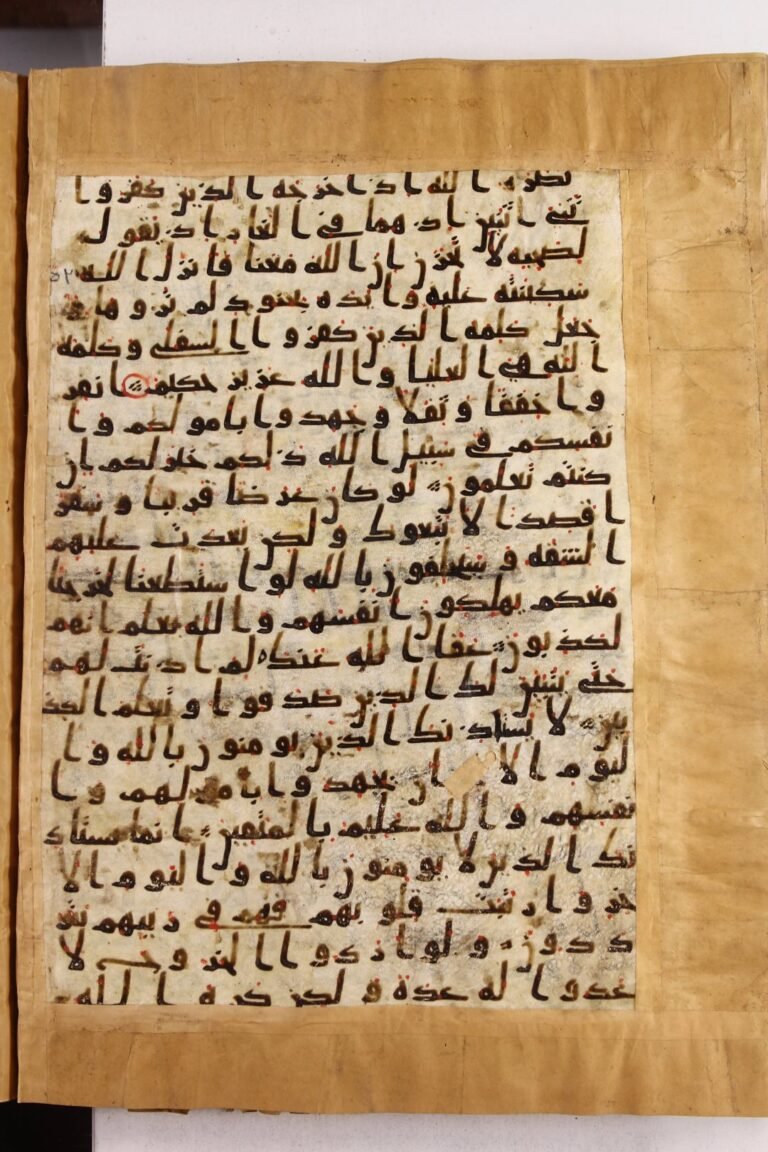 نصره الله اذ اخرجه الذين كفروا
ثني اثنين اذ هما في الغار اذ يقول
لصحبه لا تحزن ان الله معنا فانزل الله
سكينته عليه وايده بجنود لم تروها و
جعل كلمة الذين كفروا السفلى وكلمة
الله هي العليا والله عزيز حكيم انفر
وا خففا وثقلا وجهدوا بامولكم وا
نفسكم في سبيل الله ذلكم خير لكم ان
كنتم تعلمون لو كان عرضا قريبا وسفر
ا قصدا لا تبعوك ولكن بعدت عليهم
الشقة وسيحلفون بالله لو استطعنا لخرجنا
معكم يهلكون انفسهم والله يعلم انهم
لكذبون عفا الله عنك لم اذنت لهم
حتى يتبين لك الذين صدقوا وتعلم الكذ
بين لا يستاذنك الذين يومنون بالله وا
ليوم الا ان يجهدوا بامولهم وا
نفسهم والله عليم بالمتقين انما يستاذ
نك الذين لا يومنون بالله واليوم الا
خر وارتبت قلوبهم فهم في ريبهم يتر
ددون ولو ارادوا الخروج لا
عدوا له عدة ولكن كره الله